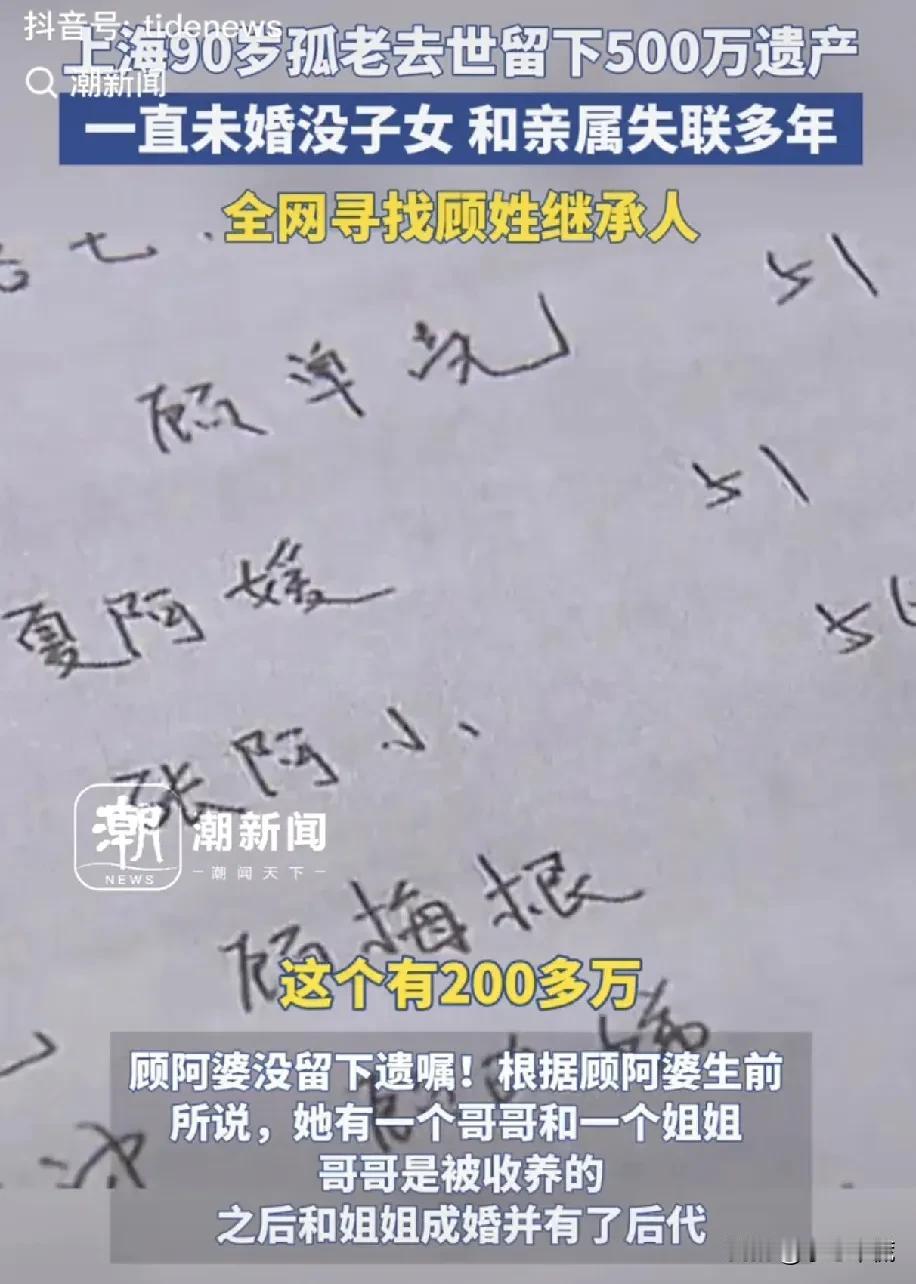 抖音号: tidenews
上海90岁孤老去世留下500万遗产
潮新闻
一直未婚没子女 和亲属失联多年
全网寻找顾姓继承人
七.
51
顾单尧
51
夏阿媛
56
张阿小
潮 NEWS
潮新闻
潮闻天下
顾梅根
这个有200多万
顾阿婆没留下遗嘱！根据顾阿婆生前
所说，她有一个哥哥和一个姐姐
哥哥是被收养的
之后和姐姐成婚并有了后代